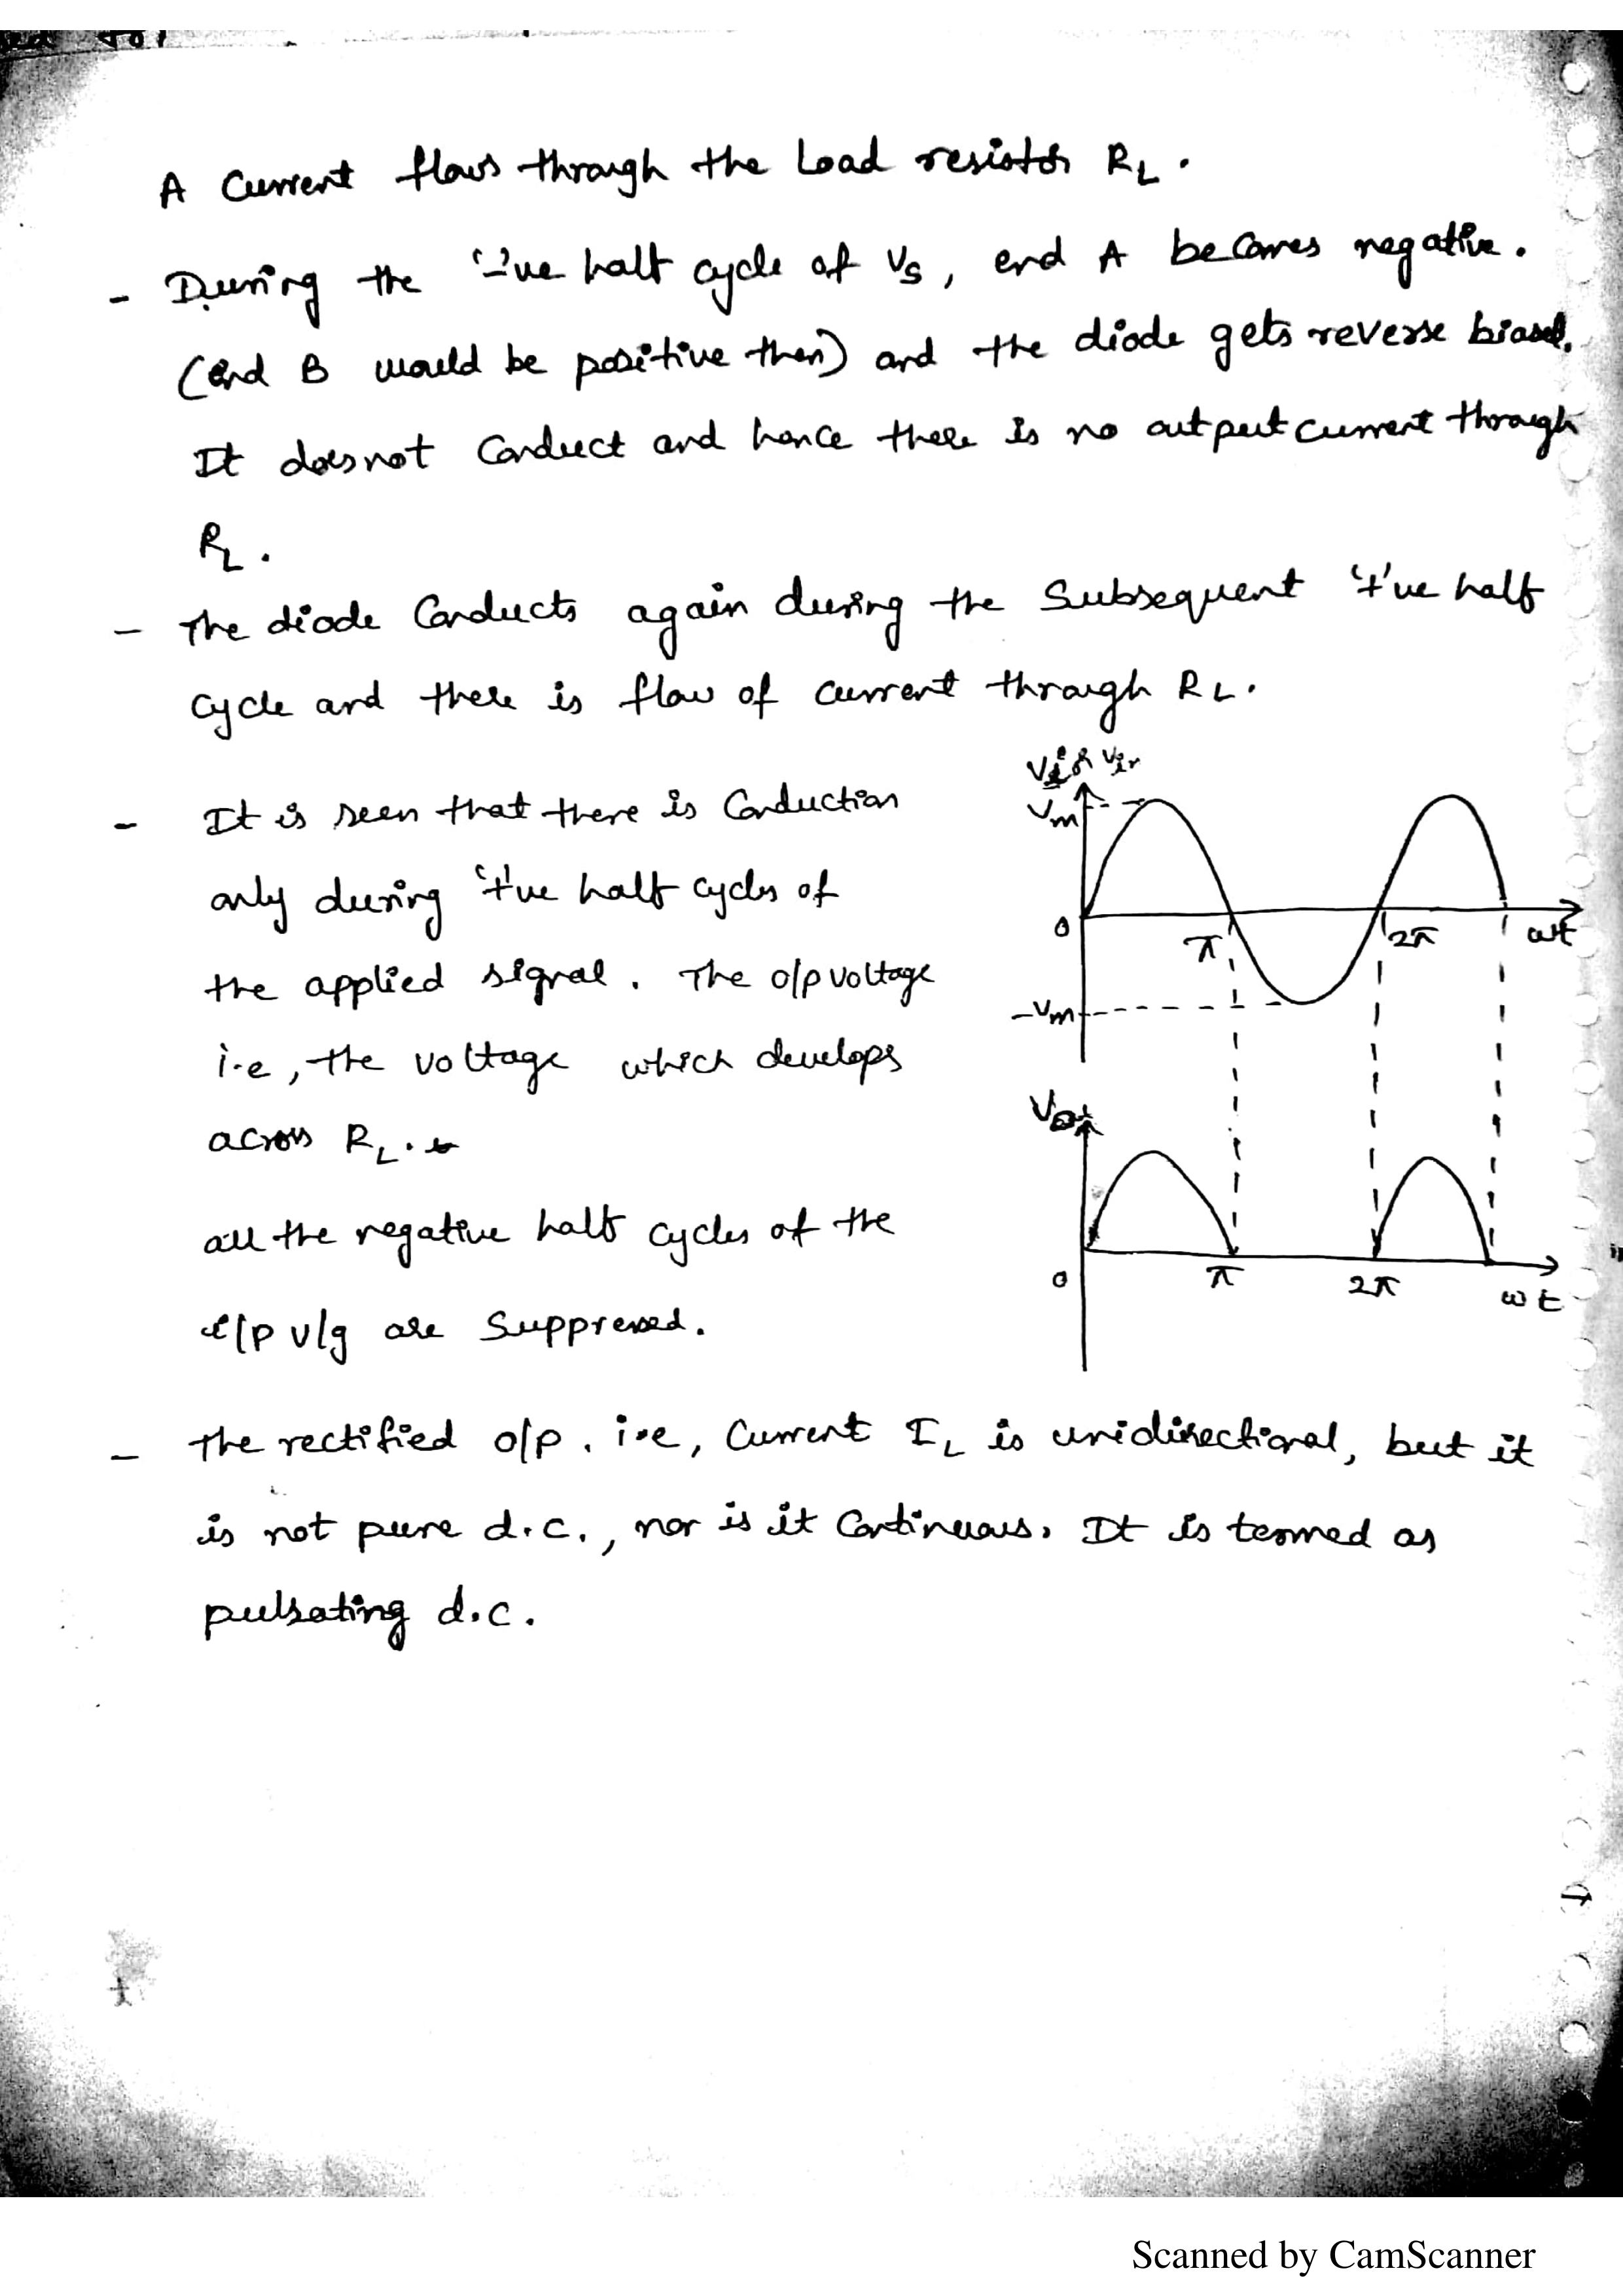 A Current flows through the Load resistor RL.
- During the '-'ve half cycle of Vs, end A becomes negative.
(end B would be positive then) and the diode gets reverse biased.
It does not Conduct and hence there is no output current through
RL.
- The diode Conducts again during the Subsequent '+'ve half
cycle and there is flow of current through RL.
- It is seen that there is Conduction
only during '+'ve half cycles of
the applied signal. The o/p voltage
i.e, the voltage which develops
across RL.
all the negative half cycles of the
i/p v/g are Suppressed.
Vm
0
π
2π
ωt
-Vm
Vo
0
π
2π
ωt
- The rectified o/p. i.e, Current IL is unidirectional, but it
is not pure d.c., nor is it Continuous. It is termed as
pulsating d.c.
Scanned by CamScanner